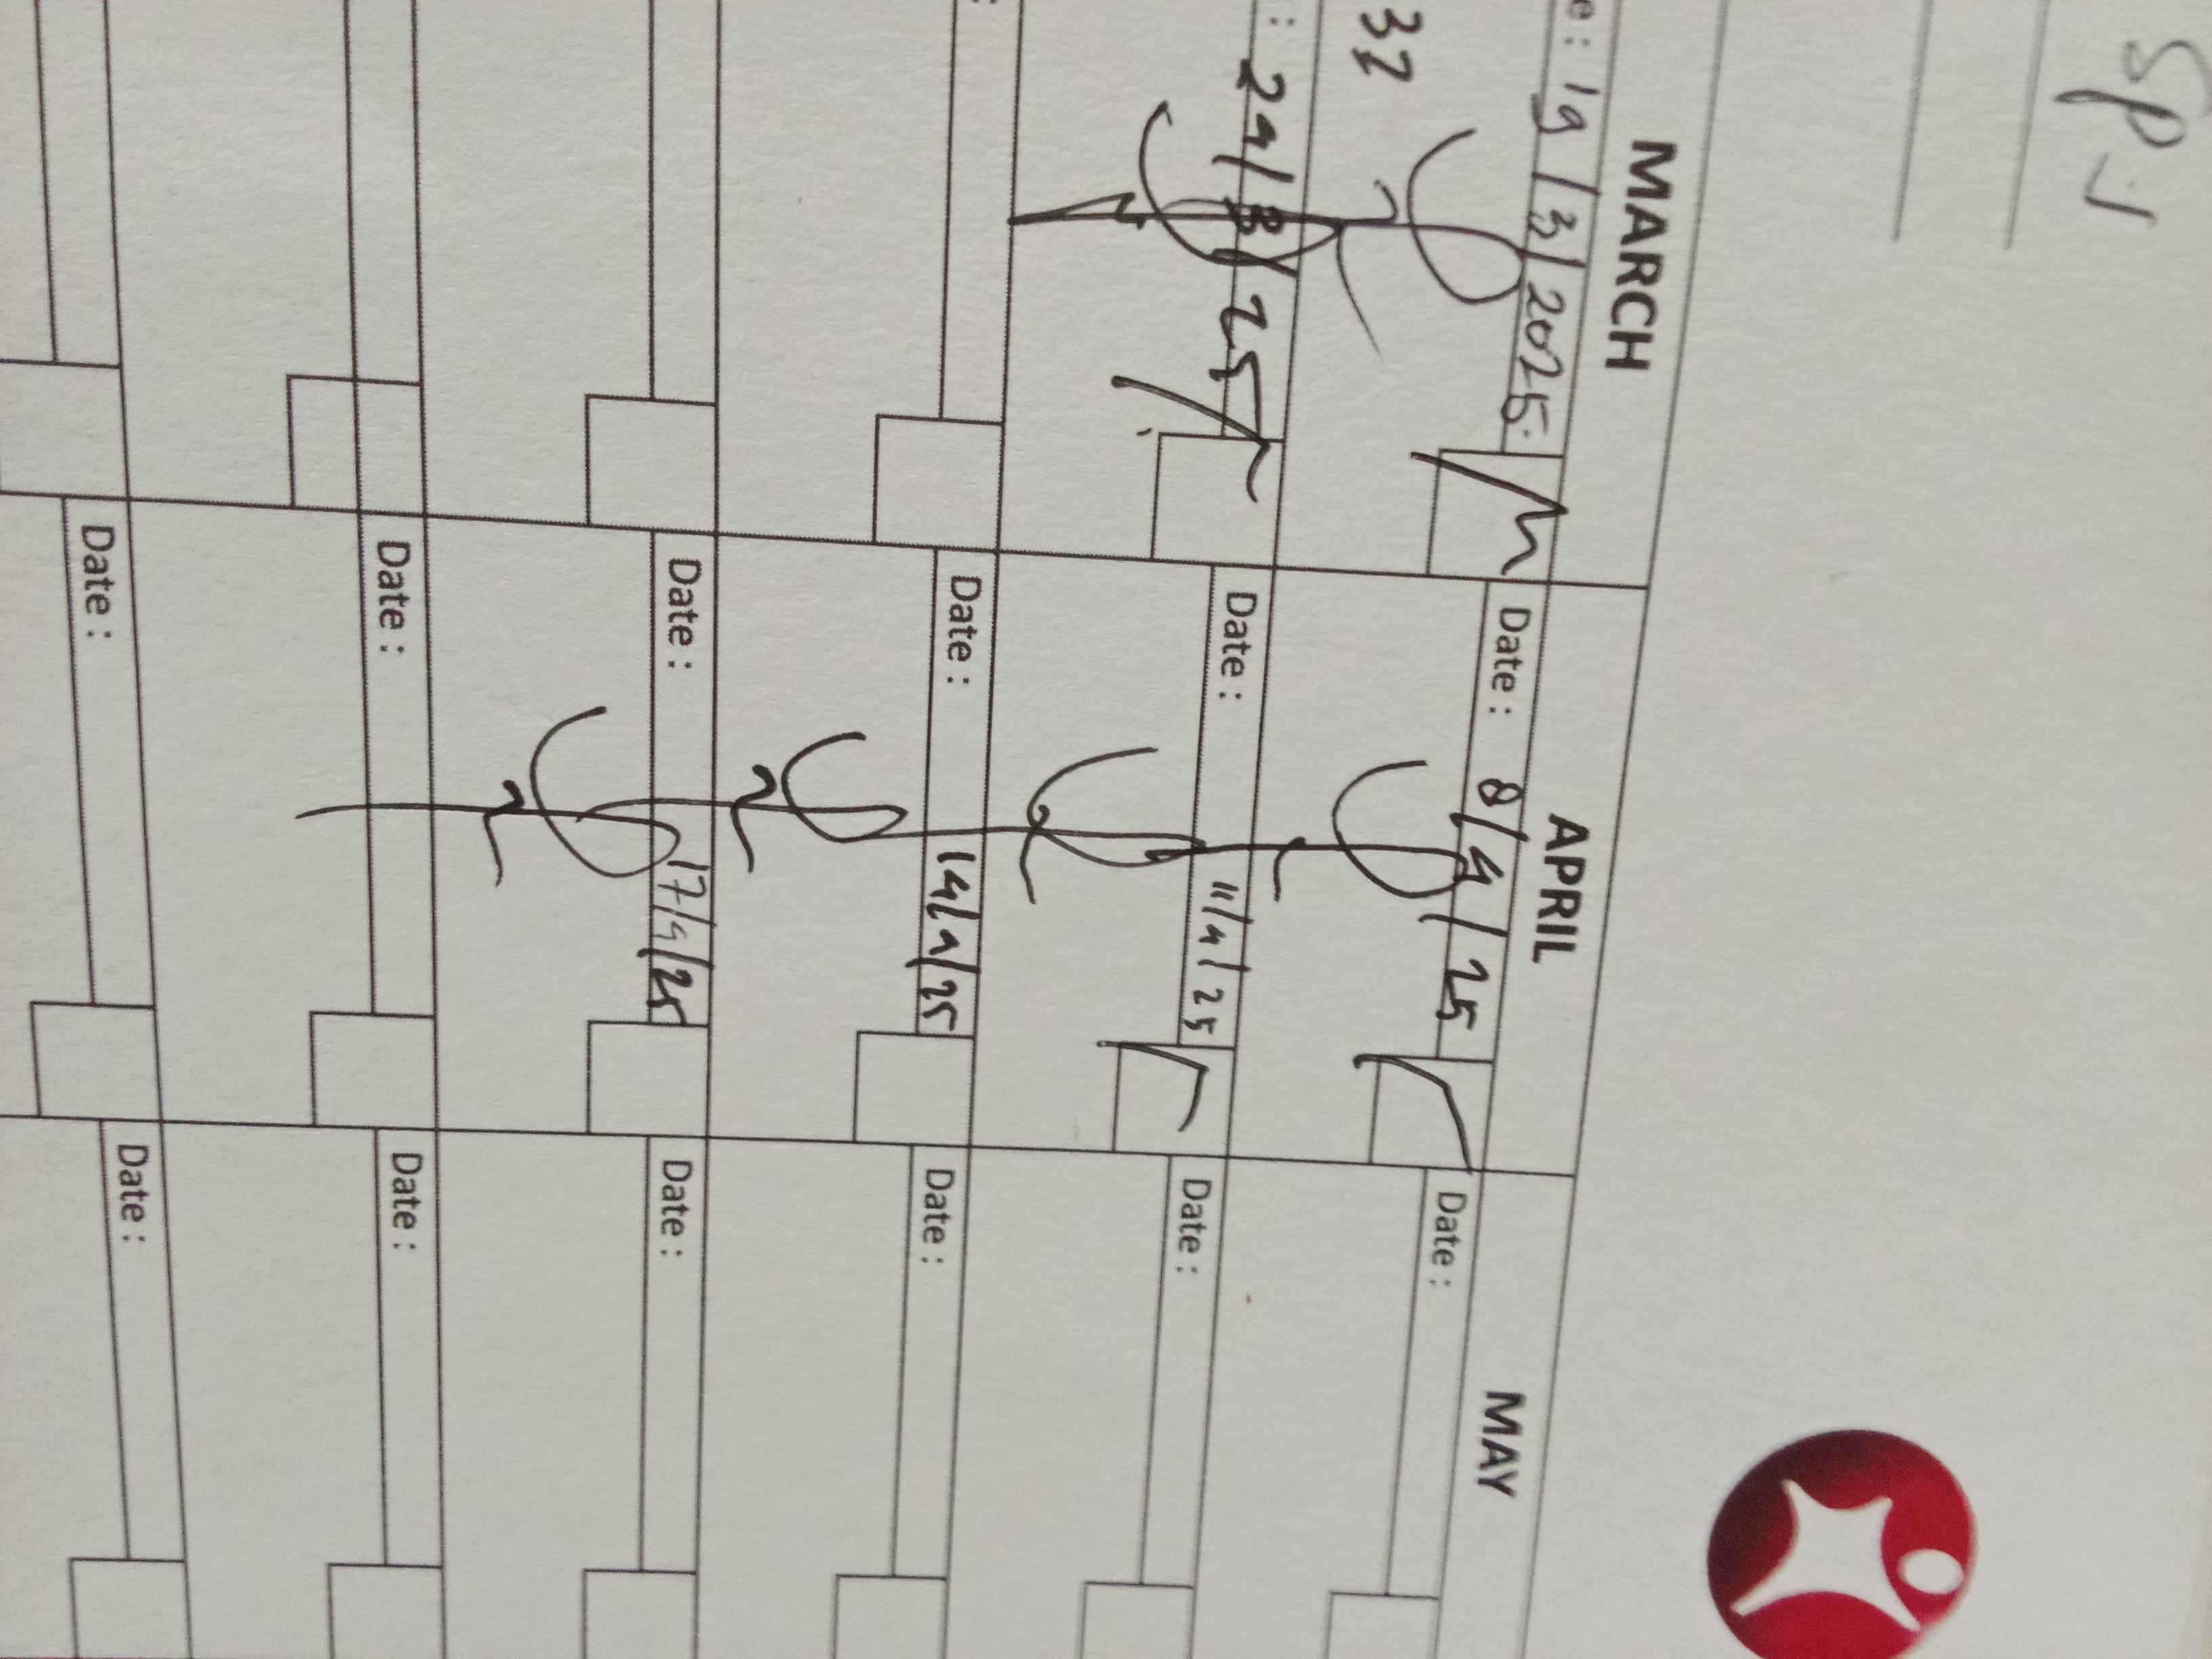 SPJ
MARCH APRIL MAY
e : 19/3/2025 Date : 8/4/25 Date :
32
: 24/3/25 Date : 11/4/25 Date :
: Date : 14/4/25 Date :
Date : 17/4/25 Date :
Date : Date :
Date : Date :